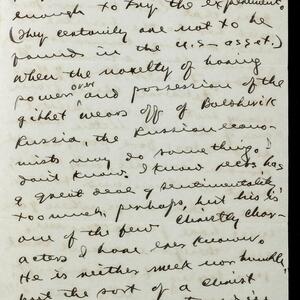 enough to try the experiment.
(They certainly are not to be
found in the U.S - asset.)
When the novelty of having
power over and possession of the
gibbet wears off of Bolshevik
Russia, the Russian econo-
mists may do something. I
don't know. I know has
a great deal of sentimentality,
too much, perhaps, but his is
one of the few Christly char-
acters I have ever known.
He is neither meek nor humble,
but the sort of a christ